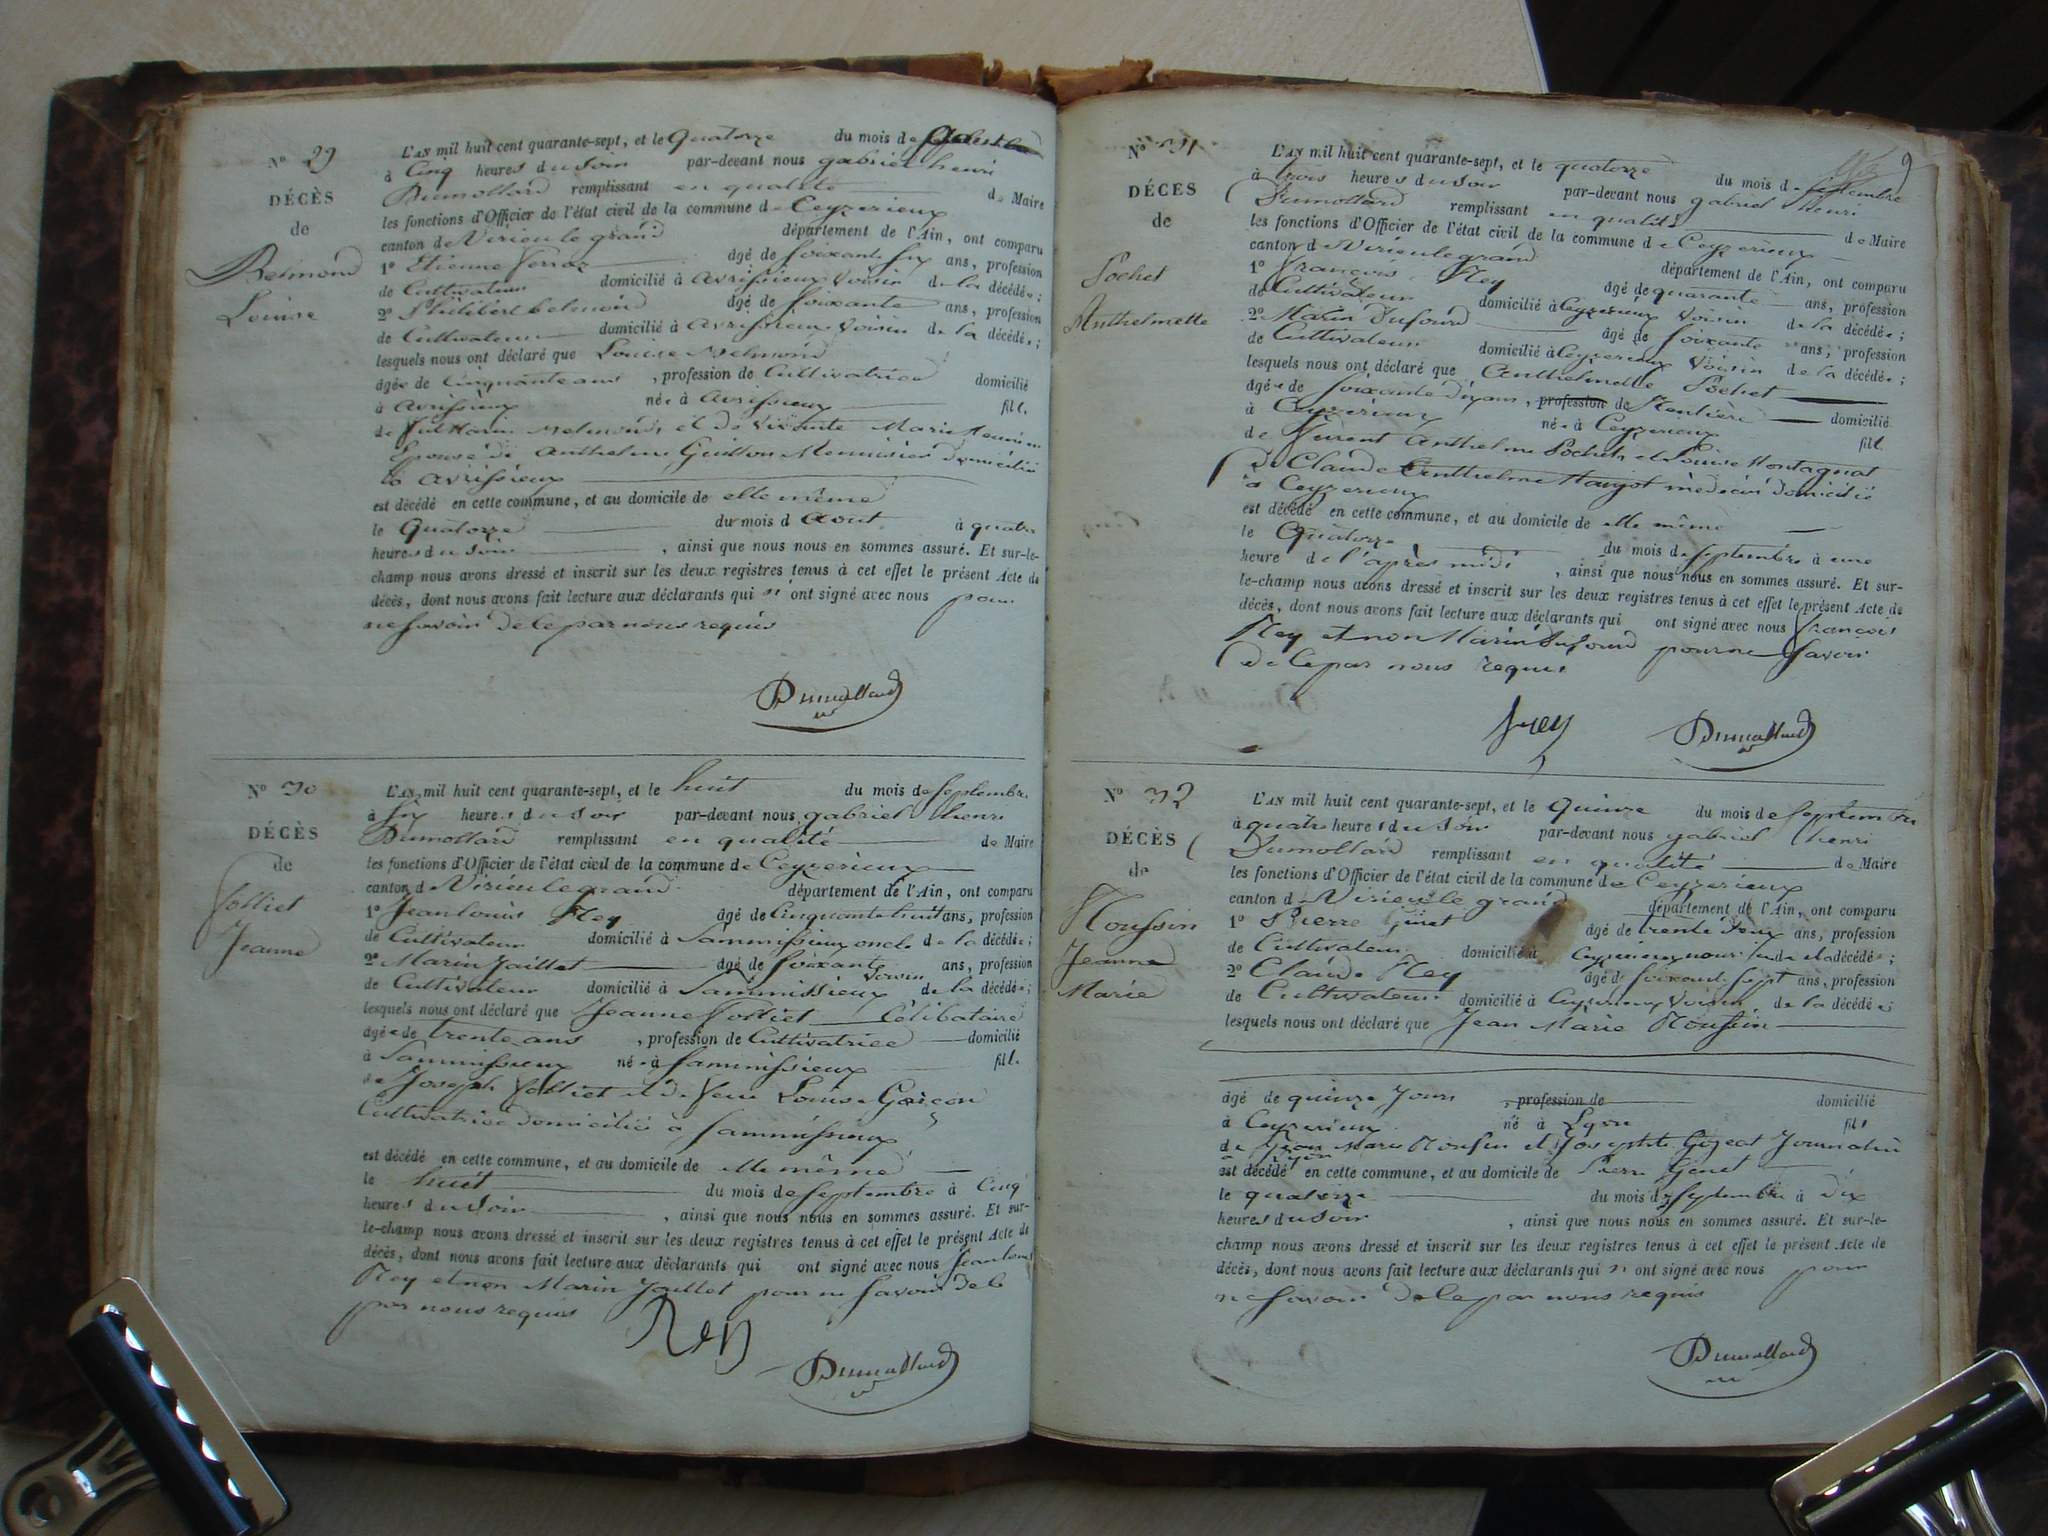 N° 29
DÉCÈS
de
Belmond
Louise
L'AN mil huit cent quarante-sept, et le Quatorze du mois de
à Cinq heures du Soir par-devant nous gabriel henri
Dumollard remplissant en qualité de Maire
les fonctions d'Officier de l'état civil de la commune de Ceyzerieux
canton de Virieu le grand département de l'Ain, ont comparu
1° Etienne âgé de Soixante Six ans, profession
de Cultivateur domicilié à avrissieux Voisin de la décédée;
2° Philibert belmond âgé de Soixante ans, profession
de Cultivateur domicilié à avrissieux Voisin de la décédée;
lesquels nous ont déclaré que Louise Belmond
âgée de Cinquante ans, profession de Cultivatrice domicilié
à avrissieux née à avrissieux fille
de Belmond, et de Vivante Marie
Epouse de anthelme Guillon Menuisier domicilié
à avrissieux
est décédé en cette commune, et au domicile de elle même
le Quatorze du mois d aout à quatre
heures du Soir, ainsi que nous nous en sommes assuré. Et sur-le-
champ nous avons dressé et inscrit sur les deux registres tenus à cet effet le présent Acte de
décès, dont nous avons fait lecture aux déclarants qui n'ont signé avec nous pour
ne Savoir de ce par nous requis
Dumollard
N° 30
DÉCÈS
de
Jolliet
Jeanne
L'AN mil huit cent quarante-sept, et le huit du mois de Septembre
à Six heures du Soir par-devant nous gabriel henri
Dumollard remplissant en qualité de Maire
les fonctions d'Officier de l'état civil de la commune de Ceyzerieux
canton de Virieu le grand département de l'Ain, ont comparu
1° Jean louis Rey âgé de Cinquante huit ans, profession
de Cultivateur domicilié à Sammissieux oncle de la décédée;
2° Marin Jaillet âgé de Soixante ans, profession
de Cultivateur domicilié à Sammissieux voisin de la décédée;
lesquels nous ont déclaré que Jeanne Jolliet Célibataire
âgée de trente ans, profession de Cultivatrice domicilié
à Sammissieux née à Sammissieux fille
de Joseph Jolliet et de feue Louise Goiçon
Cultivatrice domicilié à Sammissieux
est décédé en cette commune, et au domicile de elle même
le huit du mois de Septembre à Cinq
heures du Soir, ainsi que nous nous en sommes assuré. Et sur-
le-champ nous avons dressé et inscrit sur les deux registres tenus à cet effet le présent Acte de
décès, dont nous avons fait lecture aux déclarants qui ont signé avec nous Jean louis
Rey et non Marin Jaillet pour ne Savoir de ce
par nous requis
Rey
Dumollard
9
N° 31
DÉCES
de
Pochet
Anthelmette
L'AN mil huit cent quarante-sept, et le quatorze du mois de Septembre
à trois heures du Soir par-devant nous gabriel henri
Dumollard remplissant en qualité de Maire
les fonctions d'Officier de l'état civil de la commune de Ceyzerieux
canton de Virieu le grand département de l'Ain, ont comparu
1° François Rey âgé de quarante ans, profession
de Cultivateur domicilié à Ceyzerieux Voisin de la décédée;
2° Marin Dufourd âgé de Soixante ans, profession
de Cultivateur domicilié à Ceyzerieux Voisin de la décédée;
lesquels nous ont déclaré que Anthelmette Pochet
âgée de Soixante dix ans, profession de Rentière domicilié
à Ceyzerieux née à Ceyzerieux fille
de anthelme Pochet, et Louise Montagnat
de Claude Anthelme médecin domicilié
à Ceyzerieux
est décédé en cette commune, et au domicile de elle même
le Quatorze du mois de Septembre à une
heure de l'après midi, ainsi que nous nous en sommes assuré. Et sur-
le-champ nous avons dressé et inscrit sur les deux registres tenus à cet effet le présent Acte de
décès, dont nous avons fait lecture aux déclarants qui ont signé avec nous françois
Rey et non Marin Dufourd pour ne Savoir
de ce par nous requis
frey
Dumollard
N° 32
DÉCÈS
de
Roussin
Jeanne
Marie
L'AN mil huit cent quarante-sept, et le Quinze du mois de Septembre
à quatre heures du Soir par-devant nous gabriel henri
Dumollard remplissant en qualité de Maire
les fonctions d'Officier de l'état civil de la commune de Ceyzerieux
canton de Virieu le grand département de l'Ain, ont comparu
1° Pierre Ginet âgé de trente deux ans, profession
de Cultivateur domicilié à Ceyzerieux de la décédée;
2° Claude Rey âgé de Soixante Sept ans, profession
de Cultivateur domicilié à Ceyzerieux Voisin de la décédée;
lesquels nous ont déclaré que Jean Marie Roussin
âgé de quinze Jours, profession de domicilié
à Ceyzerieux né à Lyon fils
de Jean Marie Roussin et Josephte Journalier
à Lyon
est décédé en cette commune, et au domicile de Pierre Ginet
le quatorze du mois de Septembre à Dix
heures du Soir, ainsi que nous nous en sommes assuré. Et sur-le-
champ nous avons dressé et inscrit sur les deux registres tenus à cet effet le présent Acte de
décès, dont nous avons fait lecture aux déclarants qui n'ont signé avec nous pour
ne Savoir de ce par nous requis
Dumollard